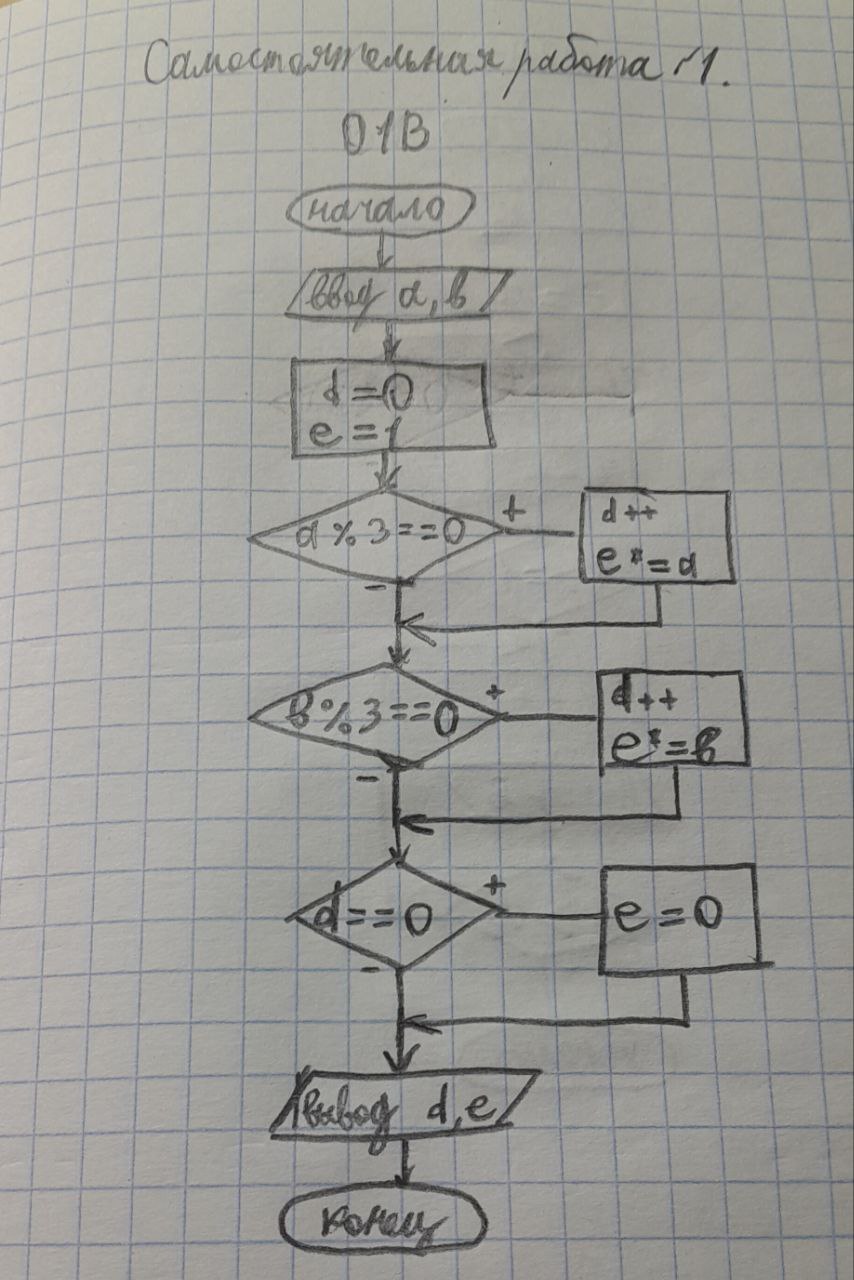 Самостоятельная работа №1.
01В
начало
ввод a, b
d=0
e=1
a%3==0
+
d++
e*=a
-
b%3==0
+
d++
e*=b
-
d==0
+
e=0
-
вывод d,e
конец